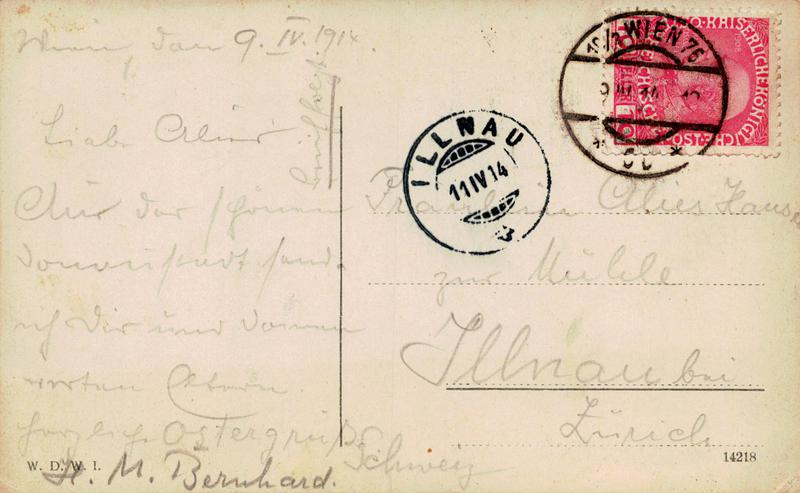 Wien, den 9. IV. 1914.
Liebe Alice!
Aus der schönen
Donaustadt send
ich Dir und Deinen
werten Eltern
herzliche Ostergrüße
H. M. Bernhard.
W. D. W. I.
ILLNAU
11 IV 14
WIEN 76
KAISERLICHE KÖNIGL
Fräulein Alice
zur Mühle
Illnau bei
Zürich
Schweiz
14218